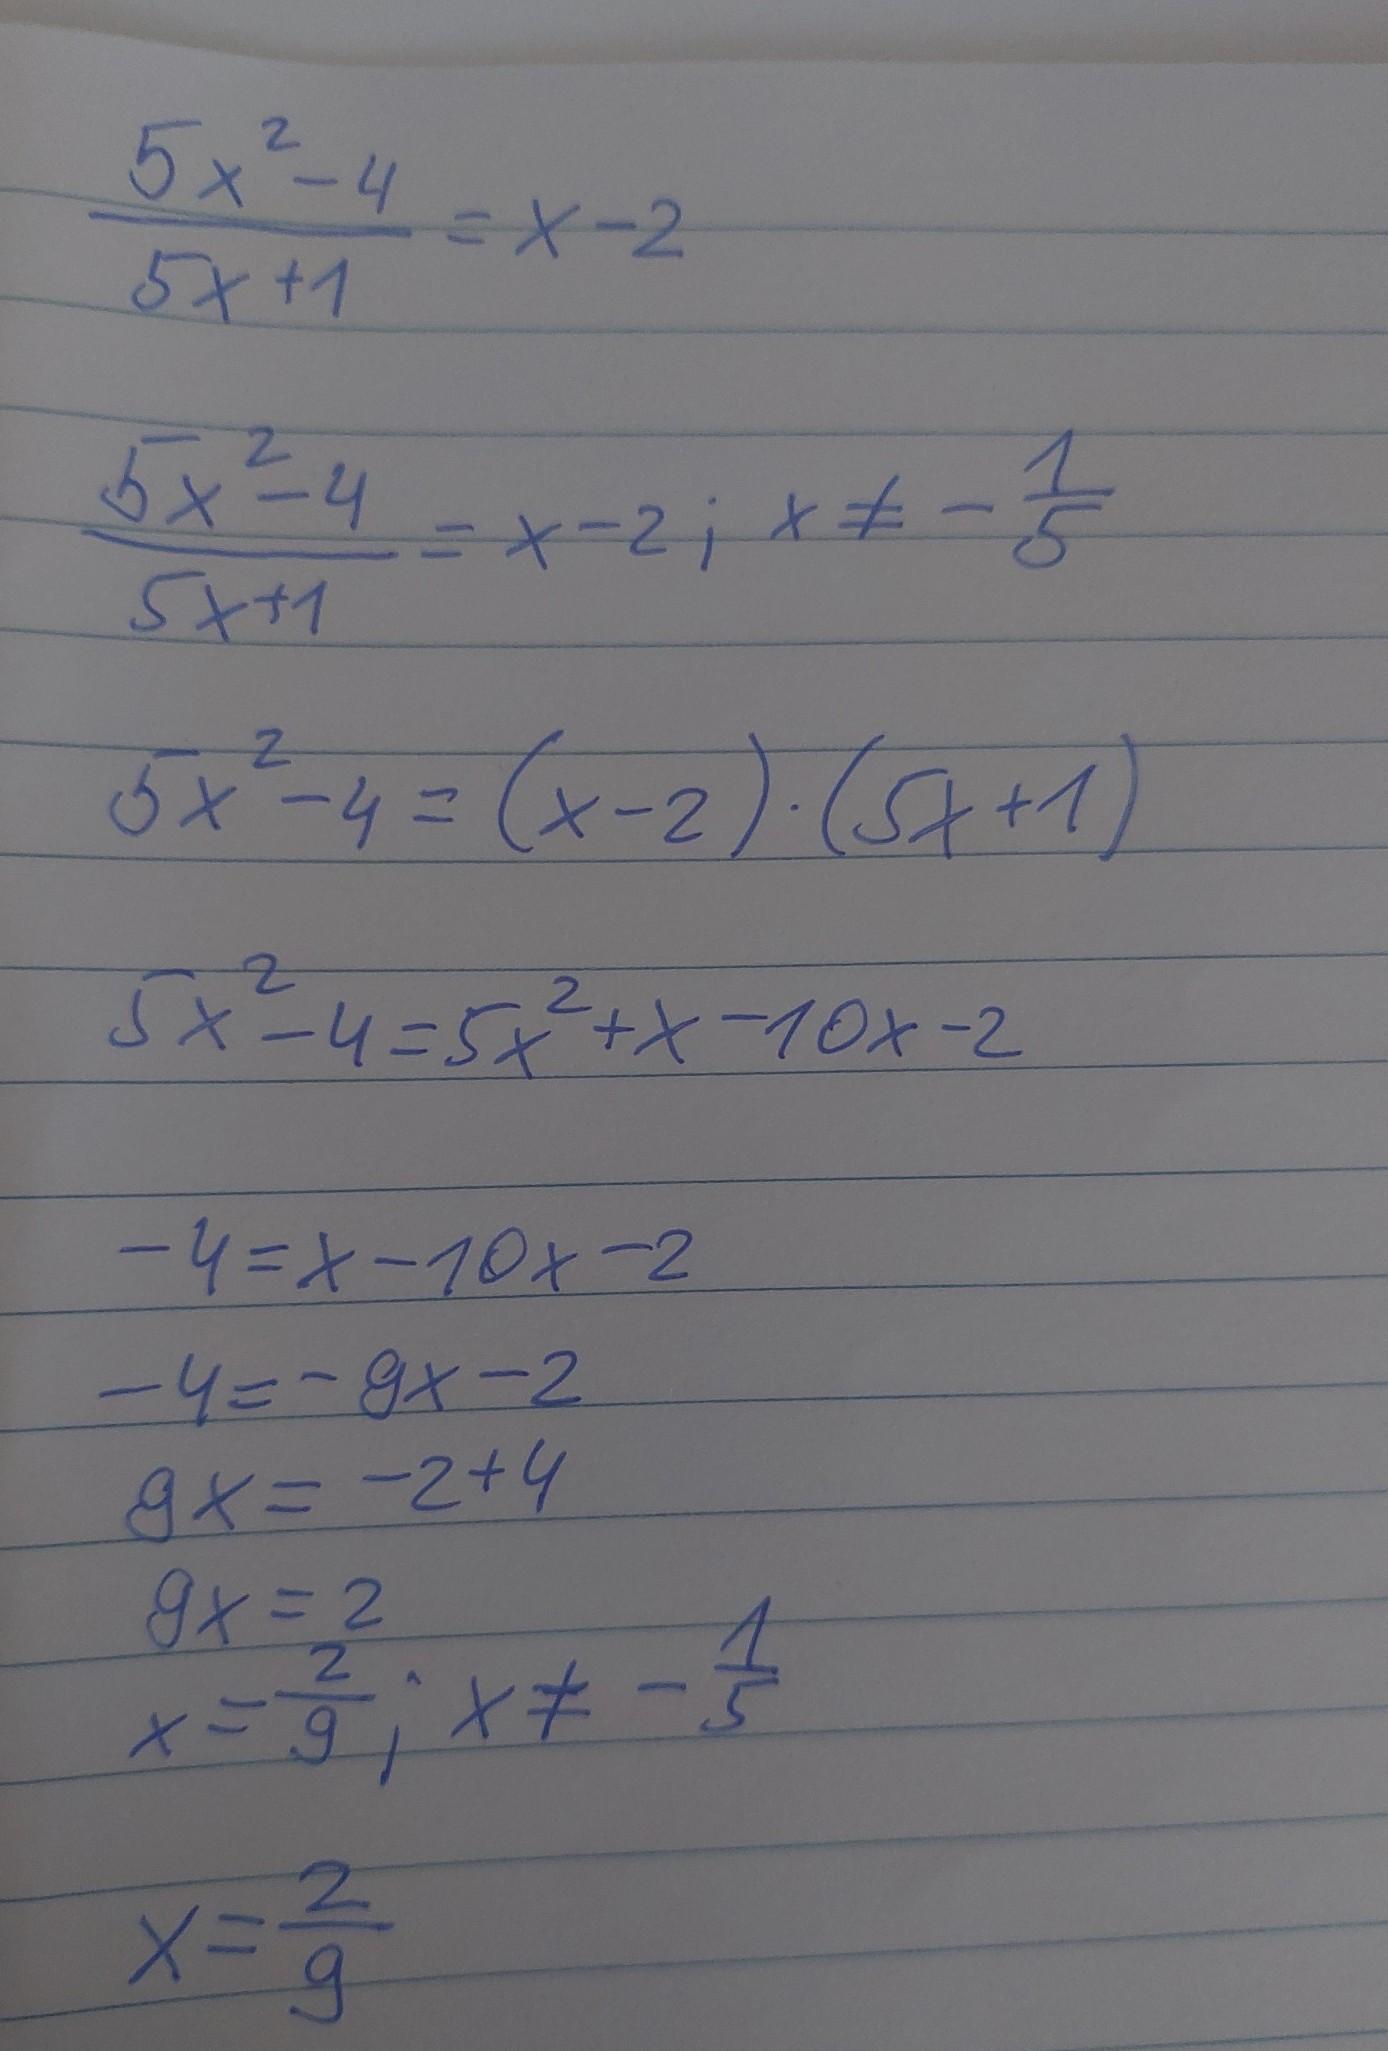 5x²-4/5x+1 = x-2
5x²-4/5x+1 = x-2; x≠ -1/5
5x²-4=(x-2)·(5x+1)
5x²-4=5x²+x-10x-2
-4=x-10x-2
-4=-9x-2
9x=-2+4
9x=2
x=2/9; x≠ -1/5
x=2/9